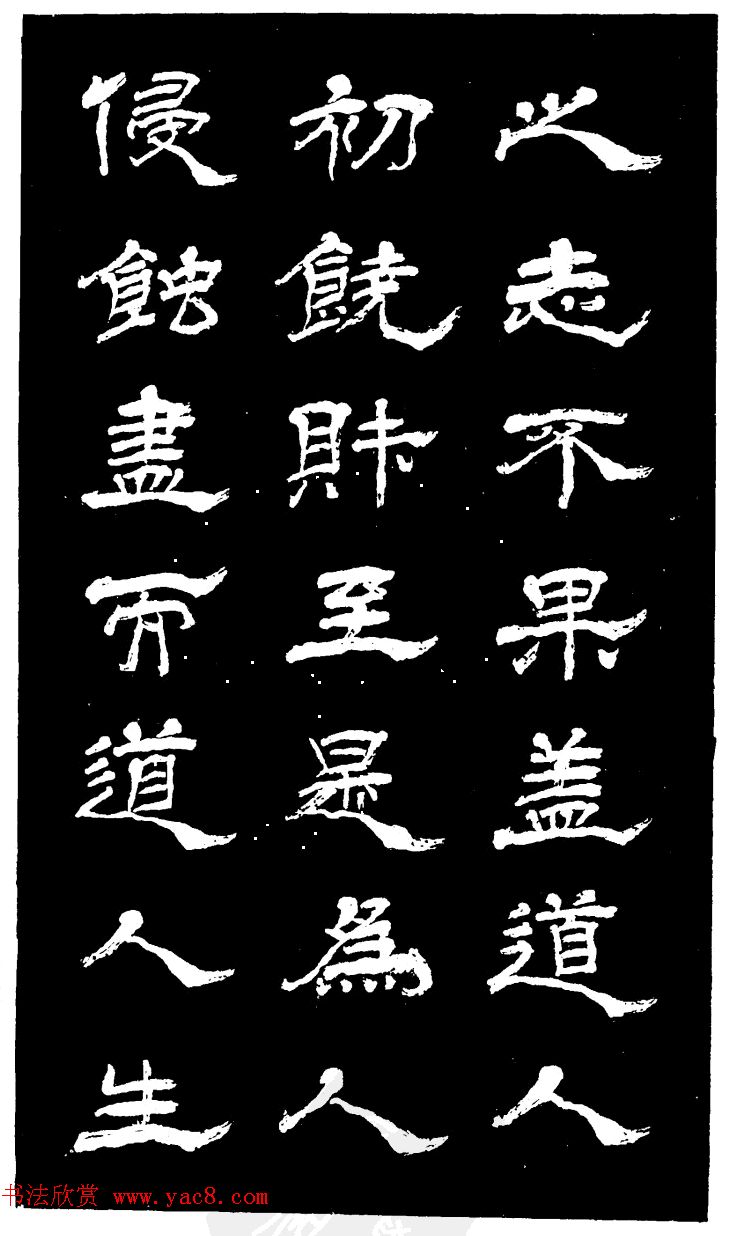 之志不果蓋道人
初饒財至是爲人
侵蝕盡而道人生
书法欣赏 www.yac8.com